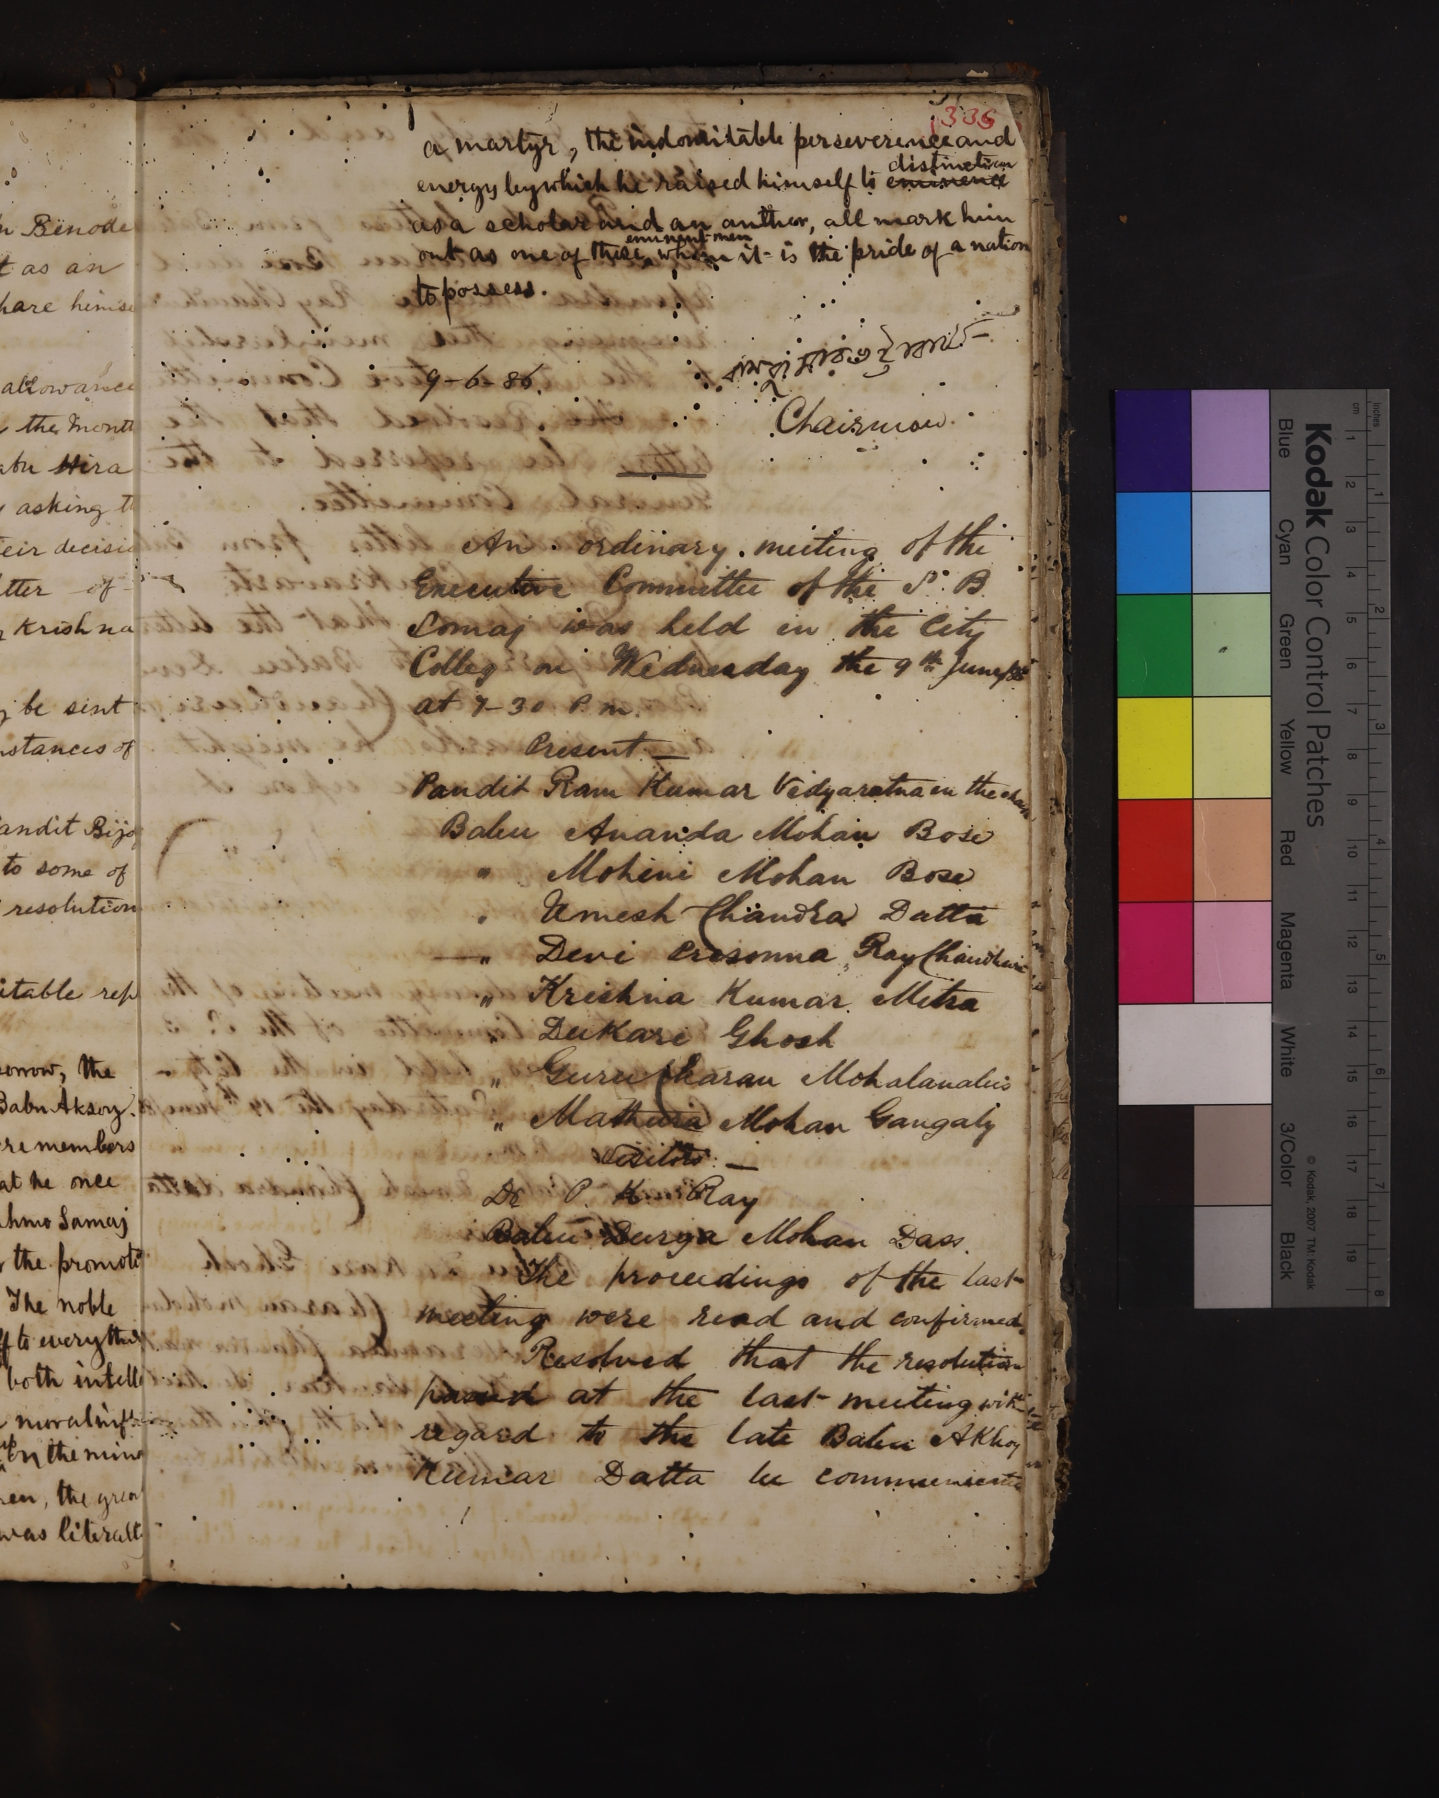 n Benode
t as an
hare himse
allowance
the Month
abu Hira
asking t
eir decisio
tter of
Krishna
be sent
nstances of
andit Bijo
to some of
resolution
itable rep
sorrow, the
Babu Aksoy.
re members
at he once
ahmo Samaj
the promot
The noble
ff to everythin
both intelle
moral nif
up on the mind
en, the grea
was literally
336
a martyr, the indomitable perseverence and
energy by which he raised himself to eminence distinction
as a scholar and an author, all mark him
out as one of those eminent men whom it is the pride of a nation
to possess.
9-6-86.
Chairman.
An ordinary meeting of the
Executive Committee of the S. B.
Somaj was held in the City
Colleg on Wednesday the 9th June/86
at 7-30 P. m.
Present —
Pandit Ram Kumar Vidyaratna in the chair
Babu Ananda Mohan Bose
" Mohini Mohan Bose
" Umesh Chandra Datta
— " Devi Presonna Ray Chaudhuri
" Krishna Kumar Mitra
" Dukari Ghosh
" Guru Charan Mohalanabis
" Mathura Mohan Gangaly
Visitors —
Dr P. K. Ray
Babu Durga Mohan Dass.
The proceedings of the last
meeting were read and confirmed.
Resolved that the resolution
passed at the last meeting with
regard to the late Babu Akhoy
Kumar Datta be communicated
Kodak Color Control Patches
Blue Cyan Green Yellow Red Magenta White 3/Color Black
© Kodak, 2007 TM: Kodak
cm 1 2 3 4 5 6 7 8 9 10 11 12 13 14 15 16 17 18 19
inches 1 2 3 4 5 6 7 8